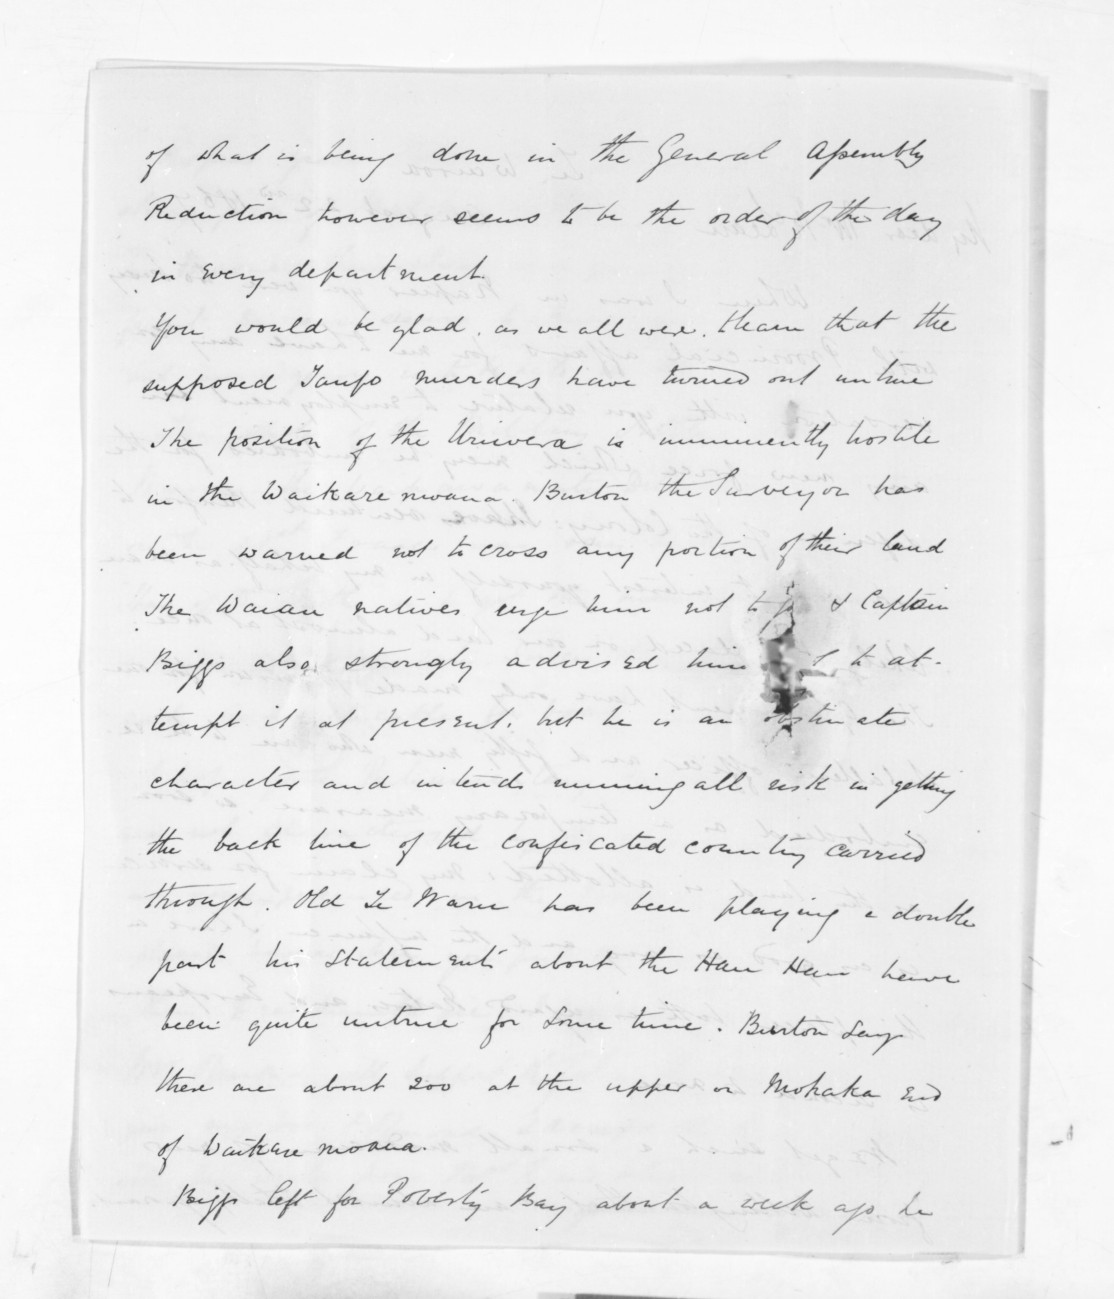 of what is being done in the General Assembly
Reduction however seems to be the order of the day
in every department.
You would be glad. as we all were. to learn that the
supposed Taupo murders have turned out untrue
The position of the Uriwera is imminently hostile
in the Waikare moana. Burton the Surveyor has
been warned not to cross any portion of their land
The Waiau natives urge him not to go & Captain
Biggs also strongly advised him to at-
tempt it at present. but he is an obstinate
character and intends running all risk in getting
the back line of the confiscated country carried
through. Old Te Waru has been playing a double
part his statements about the Hau Hau have
been quite untrue for some time. Burton says
there are about 200 at the upper or Mohaka End
of Waikare moana.
Biggs left for Poverty Bay about a week ago he